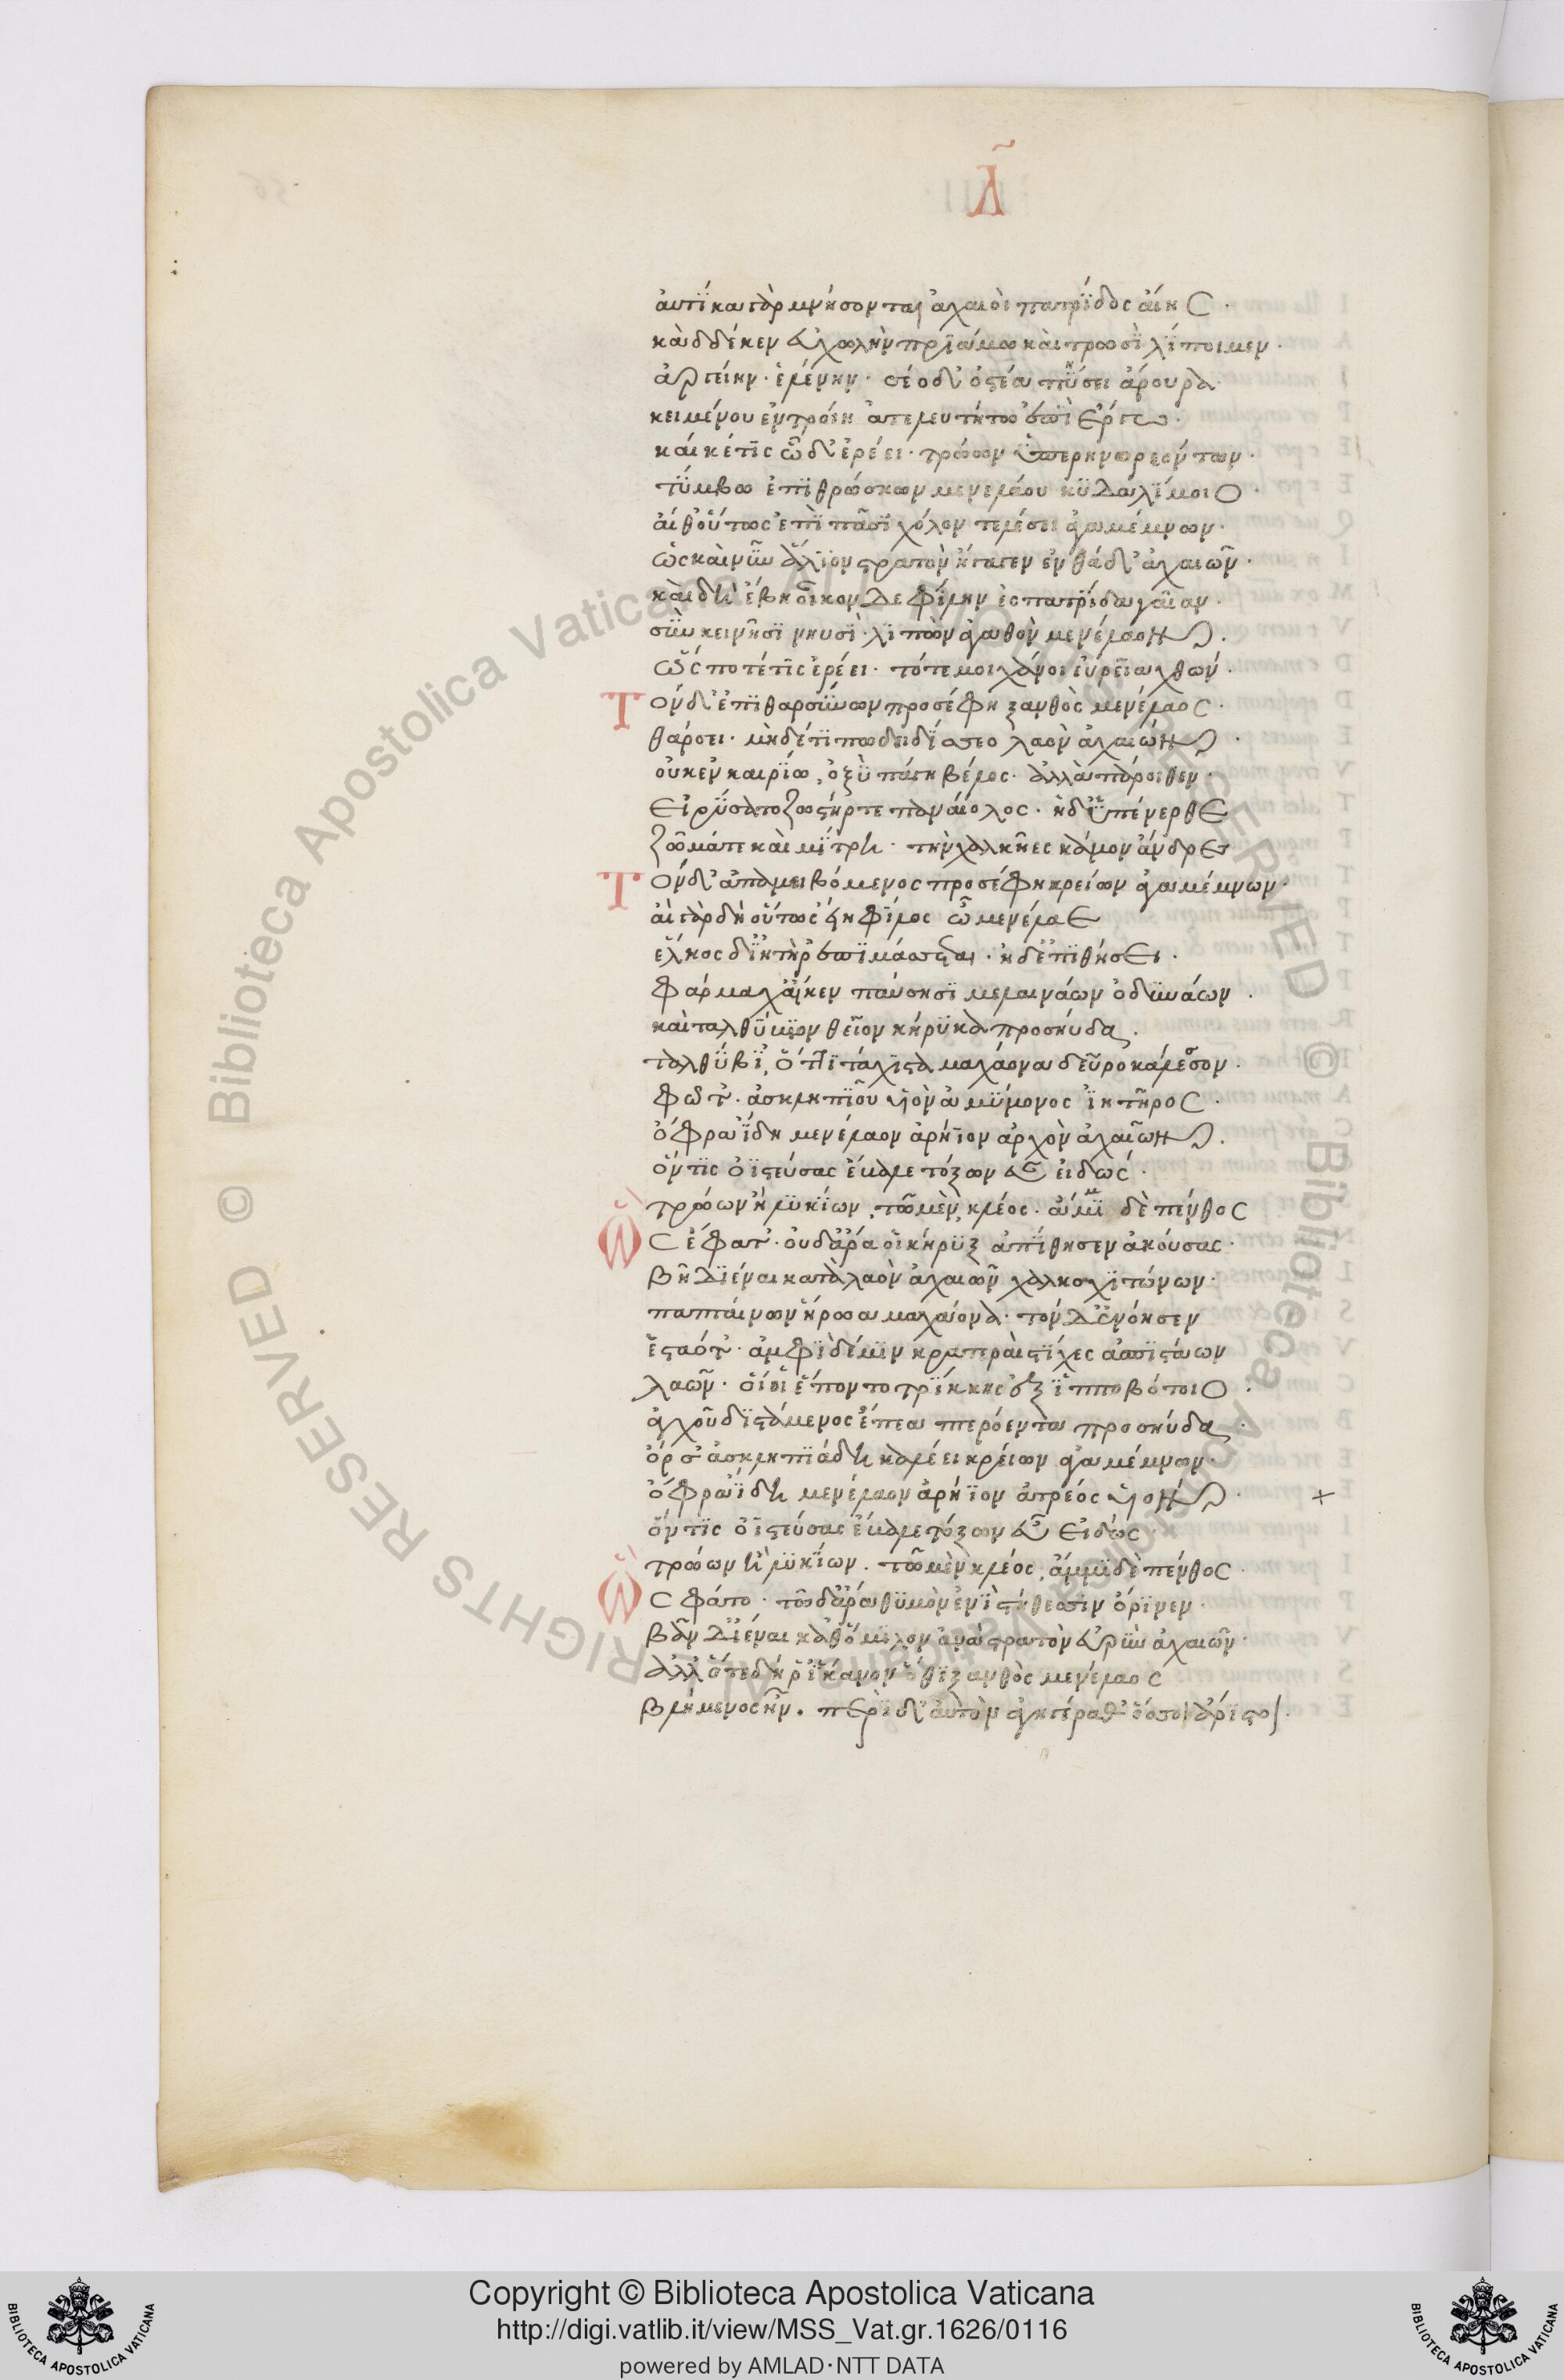 Δ
ἀυτίκα γὰρ μνήσονται ἀχαιοὶ πατρίδος ἀίης.
κὰδ δέ κεν ἐυχωλὴν πριάμω καὶ τρωσὶ λίποιμεν.
ἀργείην ἑλένην. σέο δ' ὀστέα πύσει ἄρουρα.
κειμένου ἐν τροίη ἀτελευτήτω ἐπὶ ἔργω.
καί κέ τις ὧδ' ἐρέει. τρώων ὑπερηνορεόντων.
τύμβω ἐπιθρώσκων μενελάου κυδαλίμοιο.
αἴθ' οὕτως ἐπὶ πᾶσι χόλον τελέσει ἀγαμέμνων.
ὡς καὶ νῦν ἅλιον στρατὸν ἤγαγεν ἐνθάδ' ἀχαιῶν.
καὶ δὴ ἔβη οἶκον δε φίλην ἐς πατρίδα γαῖαν.
σὺν κεινῆσι νηυσὶ. λιπὼν ἀγαθὸν μενέλαον.
ὥς ποτέ τις ἐρέει. τότε μοι χάνοι εὐρεῖα χθών.
Τὸν δ' ἐπιθαρσύνων προσέφη ξανθὸς μενέλαος.
θάρσει. μὴ δέ τί πω δειδίσσεο λαὸν ἀχαιῶν.
οὐκ ἐν καιρίω, ὀξὺ πάγη βέλος. ἀλλὰ πάροιθεν.
εἰρύσατο ζωστήρ τε παναίολος. ἠδ' ὑπένερθε
ζῶμά τε καὶ μίτρη. τὴν χαλκῆες κάμον ἄνδρες
Τὸν δ' ἀπαμειβόμενος προσέφη κρείων ἀγαμέμνων.
αἲ γὰρ δὴ οὕτως εἴη φίλος ὦ μενέλαε
ἕλκος δ' ἰητὴρ ἐπιμάσσεται. ἠδ' ἐπιθήσει.
φάρμαχ' ἅ κεν παύσησι μελαινάων ὀδυνάων.
καὶ ταλθύβιον θεῖον κήρυκα προσηύδα.
ταλθύβι', ὅττι τάχιστα μαχάονα δεῦρο κάλεσσον.
φῶτ'. ἀσκληπιοῦ υἱὸν ἀμύμονος ἰητῆρος.
ὄφρα ἴδη μενέλαον ἀρήϊον ἀρχὸν ἀχαιῶν.
ὅν τις ὀϊστεύσας ἔβαλε τόξων εὖ εἰδώς.
τρώων ἢ λυκίων, τῶ μὲν κλέος. ἄμμι δὲ πένθος
Ὣς ἔφατ'. οὐδ' ἄρα οἱ κῆρυξ ἀπίθησεν ἀκούσας.
βῆ δ' ἰέναι κατὰ λαὸν ἀχαιῶν χαλκοχιτώνων.
παπταίνων ἥρωα μαχάονα. τὸν δ' ἐνόησεν
ἑσταότ'. ἀμφὶ δέ μιν κρατεραὶ στίχες ἀσπιστάων
λαῶν. οἵ οἱ ἕποντο τρίκκης ἐξ ἱπποβότοιο.
ἀγχοῦ δ' ἱστάμενος ἔπεα πτερόεντα προσηύδα.
ὄρσ' ἀσκληπιάδη καλέει κρείων ἀγαμέμνων.
ὄφρα ἴδη μενέλαον ἀρήϊον ἀτρέος υἱόν. +
ὅν τις ὀϊστεύσας ἔβαλε τόξων εὖ εἰδώς.
τρώων ἢ λυκίων. τῶ μὲν κλέος, ἄμμι δὲ πένθος.
Ὣς φάτο. τῶ δ' ἄρα θυμὸν ἐνὶ στήθεσσιν ὄρινεν.
βὰν δ' ἰέναι καθ' ὅμιλον ἀνὰ στρατὸν εὐρὺν ἀχαιῶν.
ἀλλ' ὅτε δή ῥ' ἵκανον ὅθι ξανθὸς μενέλαος
βλήμενος ἦν. περὶ δ' αὐτὸν ἀγηγέραθ' ὅσσοι ἄριστοι.
© Biblioteca Apostolica Vaticana ALL RIGHTS RESERVED
Copyright © Biblioteca Apostolica Vaticana
http://digi.vatlib.it/view/MSS_Vat.gr.1626/0116
powered by AMLAD·NTT DATA
BIBLIOTECA APOSTOLICA VATICANA
BIBLIOTECA APOSTOLICA VATICANA